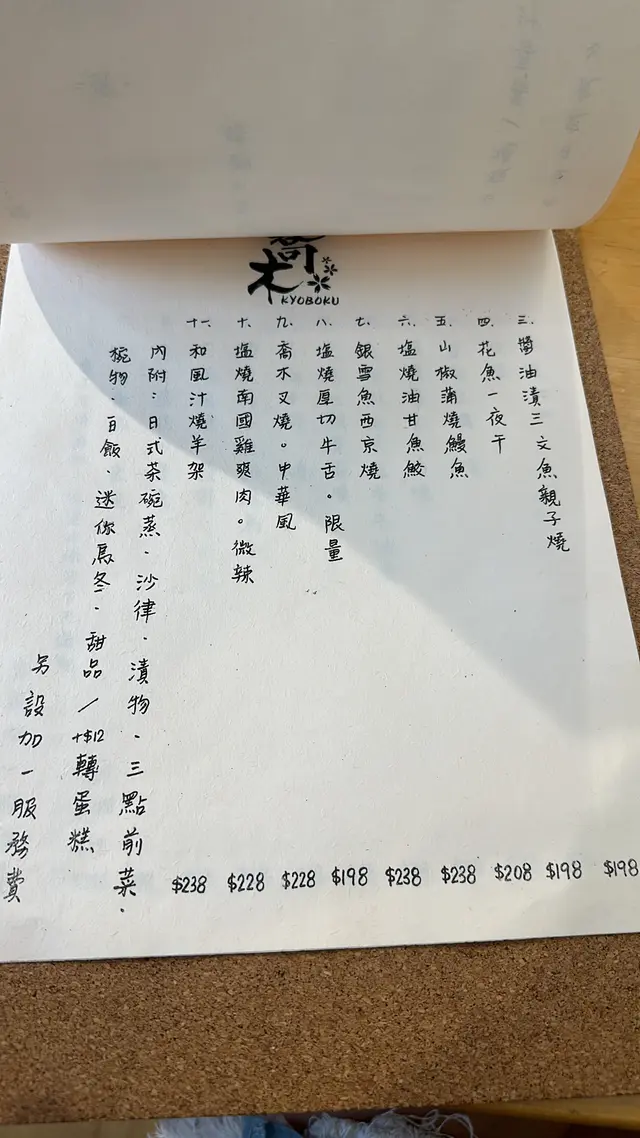 喬木
KYOBOKU
三. 醬油漬三文魚親子燒 $198
四. 花魚一夜干 $198
五. 山椒蒲燒鰻魚 $208
六. 塩燒油甘魚鮫 $238
七. 銀雪魚西京燒 $238
八. 塩燒厚切牛舌。限量 $198
九. 喬木叉燒。中華風 $228
十. 塩燒南國雞爽肉。微辣 $228
十一. 和風汁燒羊架 $238
內附：日式茶碗蒸、沙律、漬物、三點前菜、
椀物、白飯、迷你烏冬、甜品／+$12轉蛋糕
另設加一服務費